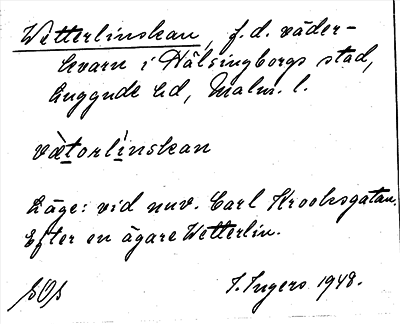 Wetterlinskan, f.d. väder-
kvarn i Hälsingborgs stad,
Luggude hd, Malm. l.
vætorlinskan
Läge: vid nuv. Carl Krooksgatan.
Efter en ägare Wetterlin.
I. Ingers 1948.